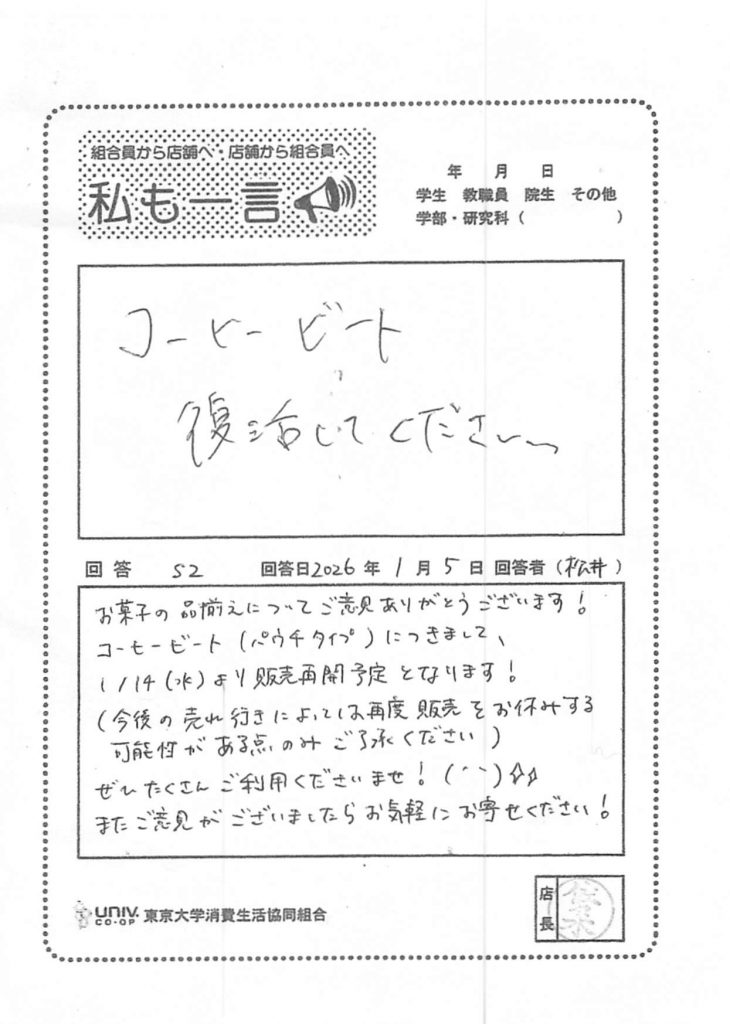 組合員から店舗へ・店舗から組合員へ
私も一言
年 月 日
学生 教職員 院生 その他
学部・研究科( )
コーヒービート
復活してください
回答 S2 回答日2026年1月5日 回答者(松井)
お菓子の品揃えについてご意見ありがとうございます!
コーヒービート(パウチタイプ)につきまして、
1/14(水)より販売再開予定となります!
(今後の売れ行きによっては再度販売をお休みする
可能性がある点のみご了承ください)
ぜひたくさんご利用くださいませ!(^^)
またご意見がございましたらお気軽にお寄せください!
UNIV. CO-OP 東京大学消費生活協同組合
店長